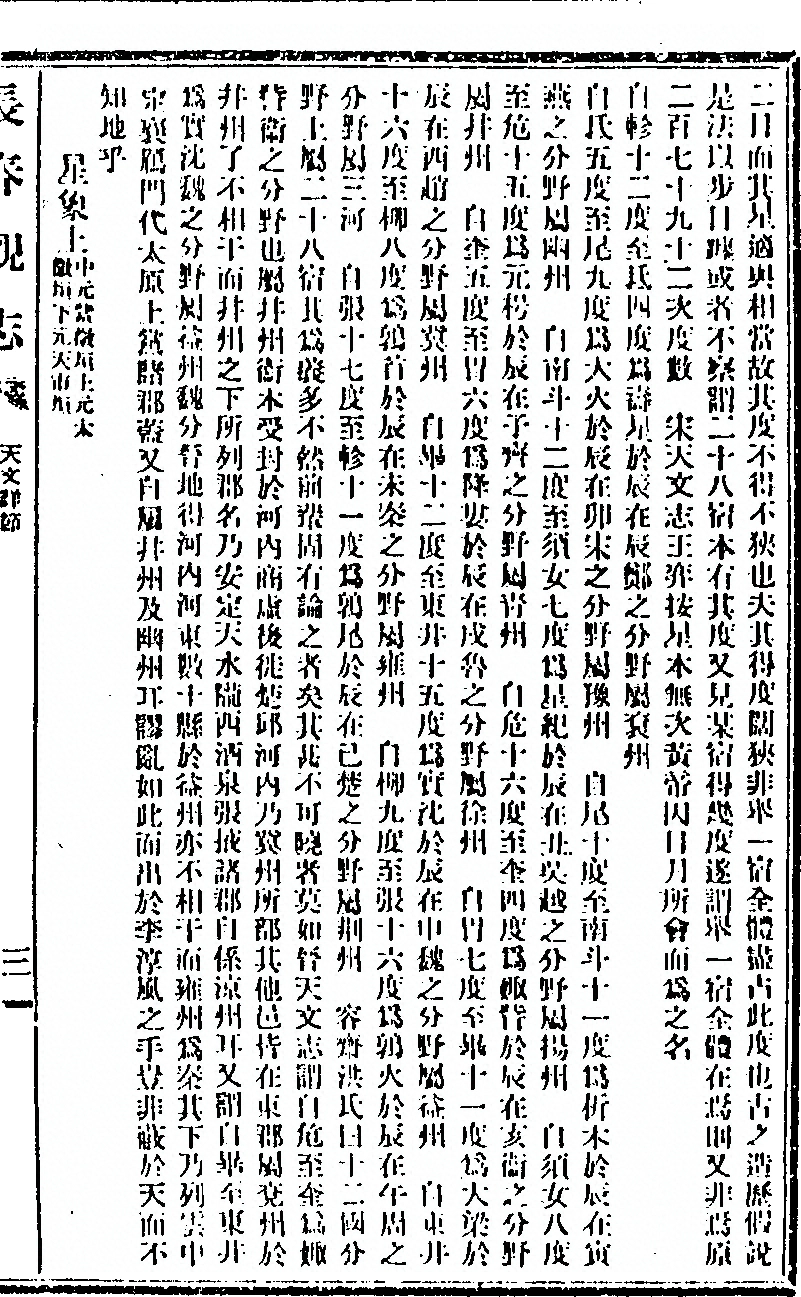 二日而其星適與相當故其度不得不狹也夫其得度闊狹非舉一宿全體盡占此度也古之造曆假說
是法以步日躔或者不察謂二十八宿本有其度又見某宿得幾度遂謂舉一宿全體在焉則又非爲原
二百七十九十二次度數　宋天文志王奕按星本無次黃帝因日月所會而爲之名
自軫十二度至氐四度爲壽星於辰在辰鄭之分野屬兗州
自氐五度至尾九度爲大火於辰在卯宋之分野屬豫州　自尾十度至南斗十一度爲析木於辰在寅
燕之分野屬幽州　自南斗十二度至須女七度爲星紀於辰在丑吳越之分野屬揚州　自須女八度
至危十五度爲元枵於辰在子齊之分野屬青州　自危十六度至奎四度爲娵訾於辰在亥衞之分野
屬幷州　自奎五度至胃六度爲降婁於辰在戌魯之分野屬徐州　自胃七度至畢十一度爲大梁於
辰在酉趙之分野屬冀州　自畢十二度至東井十五度爲實沈於辰在申魏之分野屬益州　自東井
十六度至柳八度爲鶉首於辰在未秦之分野屬雍州　自柳九度至張十六度爲鶉火於辰在午周之
分野屬三河　自張十七度至軫十一度爲鶉尾於辰在巳楚之分野屬荆州　容齋洪氏曰十二國分
野上屬二十八宿其爲義多不然前輩固有論之者矣其甚不可曉者莫如晉天文志謂自危至奎爲娵
訾衞之分野也屬幷州衞本受封於河內商虛後徙楚邱河內乃冀州所部其他邑皆在東郡屬兗州於
幷州了不相干而幷州之下所列郡名乃安定天水隴西酒泉張掖諸郡自係涼州耳又謂自畢至東井
爲實沈魏之分野屬益州魏分晉地得河內河東數十縣於益州亦不相干而雍州爲秦其下乃列雲中
定襄鴈門代太原上黨諸郡蓋又自屬幷州及幽州耳謬亂如此而出於李淳風之手豈非蔽於天而不
知地乎
星象上中元紫微垣上元太微垣下元天市垣
長春觀志
天文郡師
三一